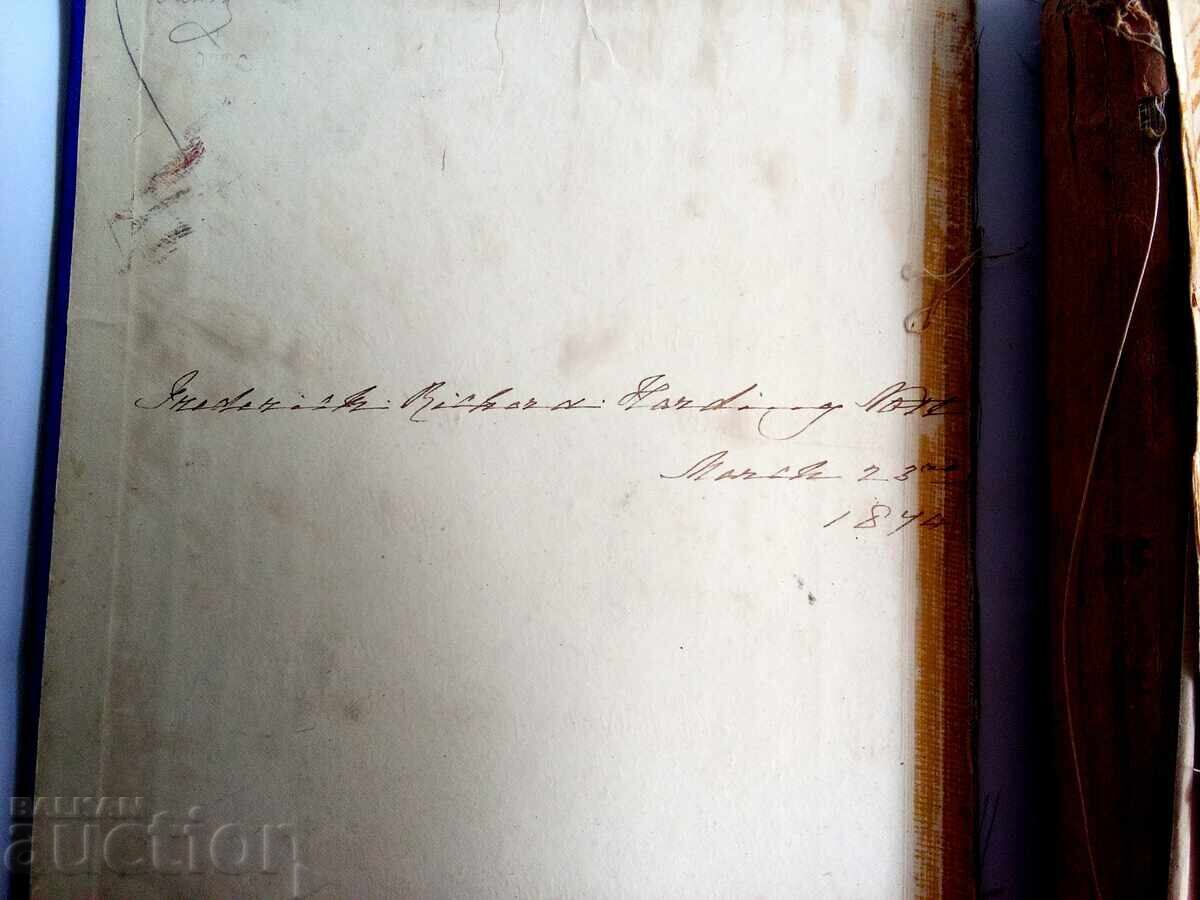 Frederick. Richard. Harding Nott
March 23rd
1870
BALKAN
auction